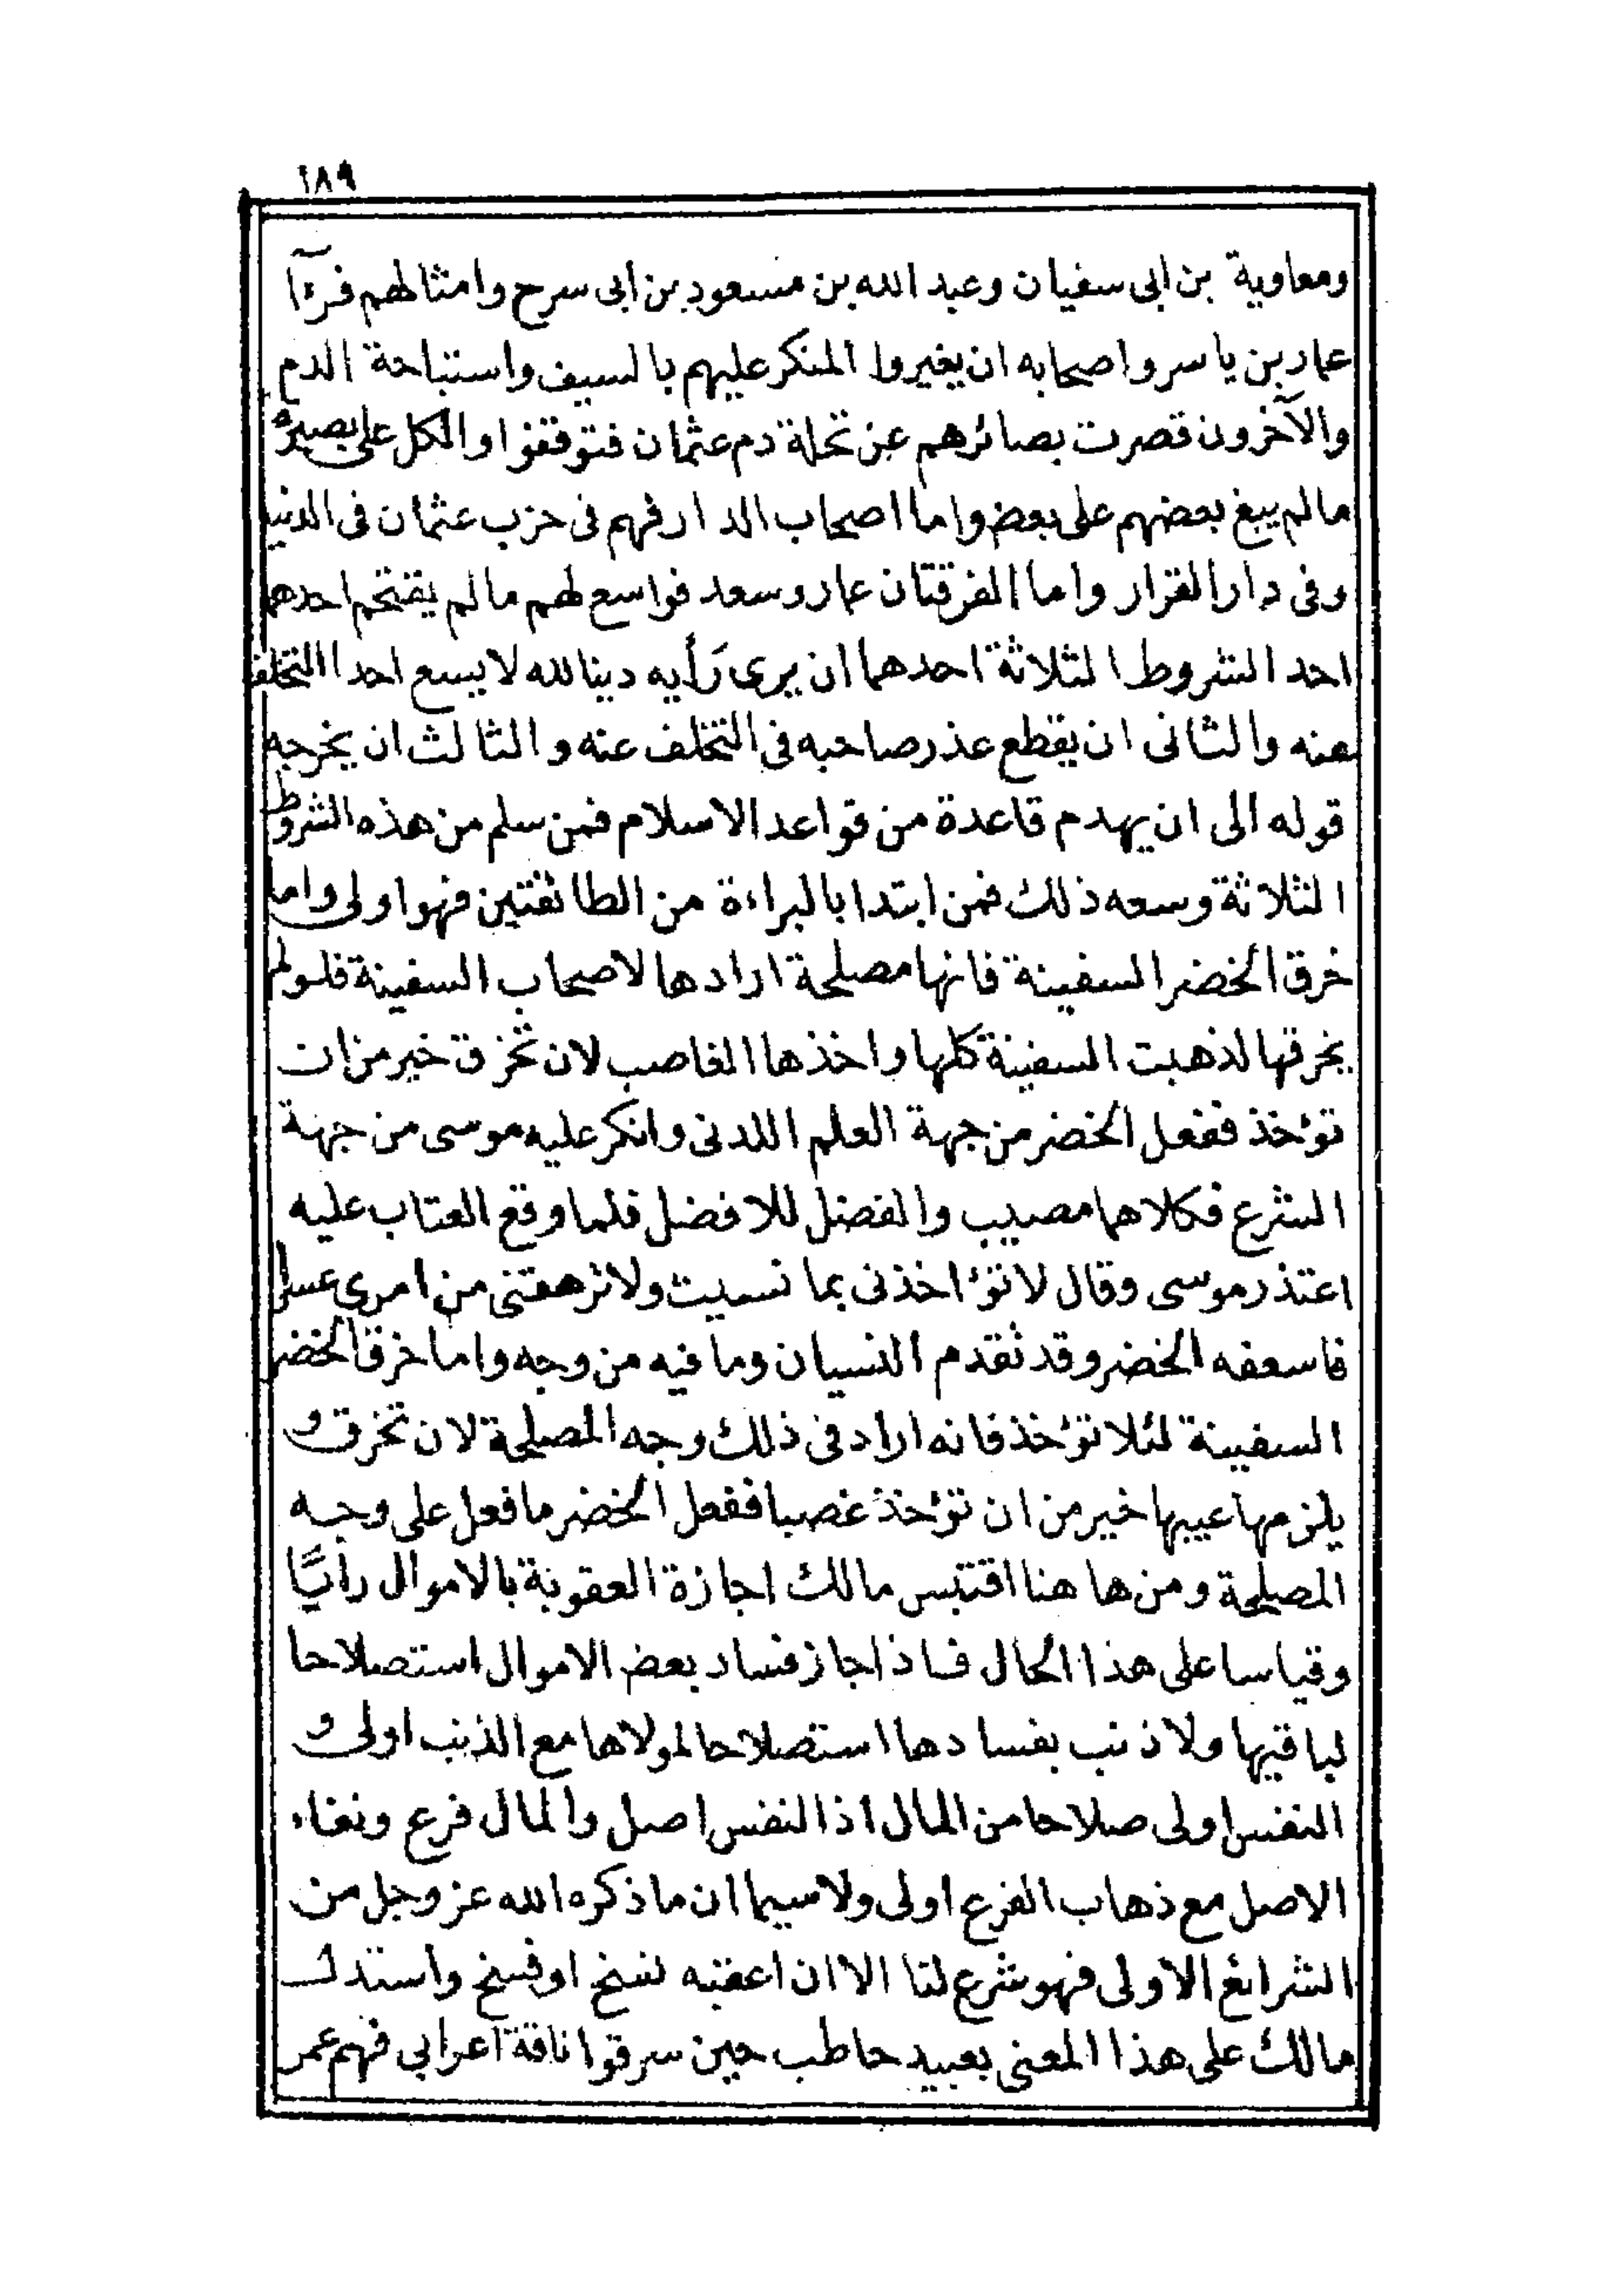 ١٨٩
ومعاوية بن ابى سفيان وعبد الله بن مسعود بن ابى سرح وامثالهم فرءآ
عمار بن ياسر واصحابه ان يغيروا المنكر عليهم بالسيف واستباحة الدم
والآخرون قصرت بصائرهم عن تحلة دم عثمان فتوقفوا والكل على بصيرة
ما لم يبغ بعضهم على بعض واما اصحاب الدار فهم فى حزب عثمان فى الدنيا
وفى دار القرار واما الفرقتان عمار وسعد فواسع لهم ما لم يقتحم احدهما
احد الشروط الثلاثة احدهما ان يرى رَأيه دينا لله لا يسع احدا التخلف
عنه والثانى ان يقطع عذر صاحبه فى التخلف عنه والثالث ان يخرجه
قوله الى ان يهدم قاعدة من قواعد الاسلام فمن سلم من هذه الشروط
الثلاثة وسعه ذلك فمن ابتدا بالبراءة من الطائفتين فهو اولى واما
خرق الخضر السفينة فانها مصلحة ارادها لاصحاب السفينة فلولم
يخرقها لذهبت السفينة كلها واخذها الغاصب لان تخرق خير من ان
تؤخذ ففعل الخضر من جهة العلم اللدنى وانكر عليه موسى من جهة
الشرع فكلاهما مصيب والفضل للافضل فلما وقع العتاب عليه
اعتذر موسى وقال لا تؤاخذنى بما نسيت ولا ترهقنى من امرى عسرا
فاسعفه الخضر وقد تقدم النسيان وما فيه من وجه واما خرق الخضر
السفينة لئلا تؤخذ فانه اراد فى ذلك وجه المصلحة لان تخرق و
يلزمها عيبها خير من ان تؤخذ غصبا ففعل الخضر ما فعل على وجه
المصلحة ومن ها هنا اقتبس مالك اجازة العقوبة بالاموال رأيًا
وقياسا على هذا الحال فاذا جاز فساد بعض الاموال استصلاحا
لباقيها ولا ذنب بفسادها استصلاحا لمولاها مع الذنب اولى و
النفس اولى صلاحا من المال اذا النفس اصل والمال فرع وبقاء
الاصل مع ذهاب الفرع اولى ولا سيما ان ما ذكره الله عز وجل من
الشرائع الاولى فهو شرع لنا الا ان اعقبه نسخ او فسخ واستدل
مالك على هذا المعنى بعبيد حاطب حين سرقوا ناقة اعرابي فهم عمر